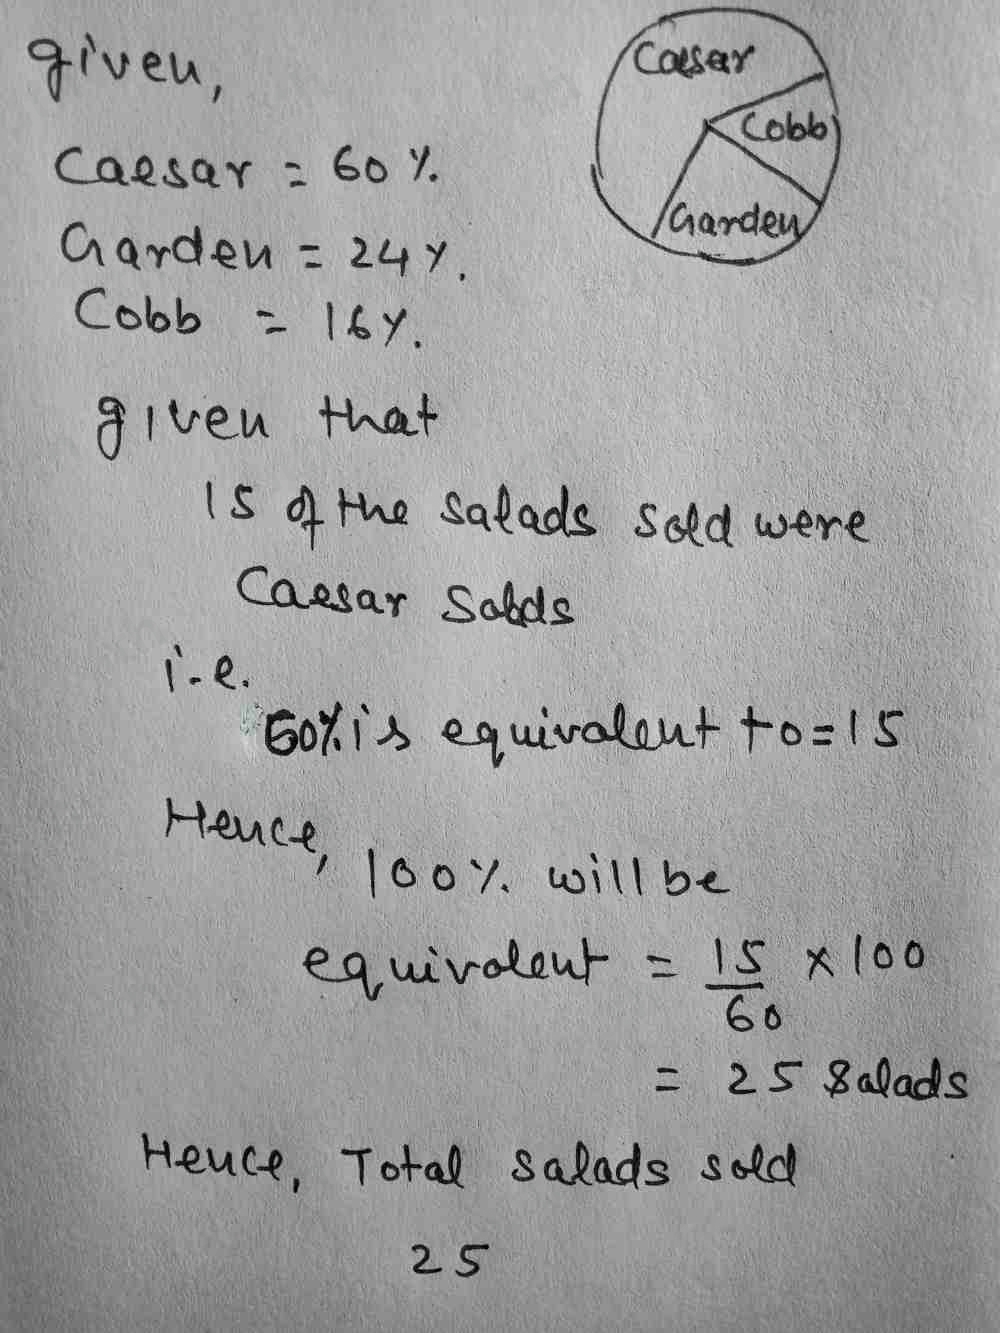 given,
Caesar
Cobb
Garden
Caesar = 60%.
Garden = 24%.
Cobb = 16%.
given that
15 of the salads sold were
Caesar Salds
i.e.
60% is equivalent to = 15
Hence,
100% will be
equivalent = 15/60 × 100
= 25 Salads
Hence, Total salads sold
25